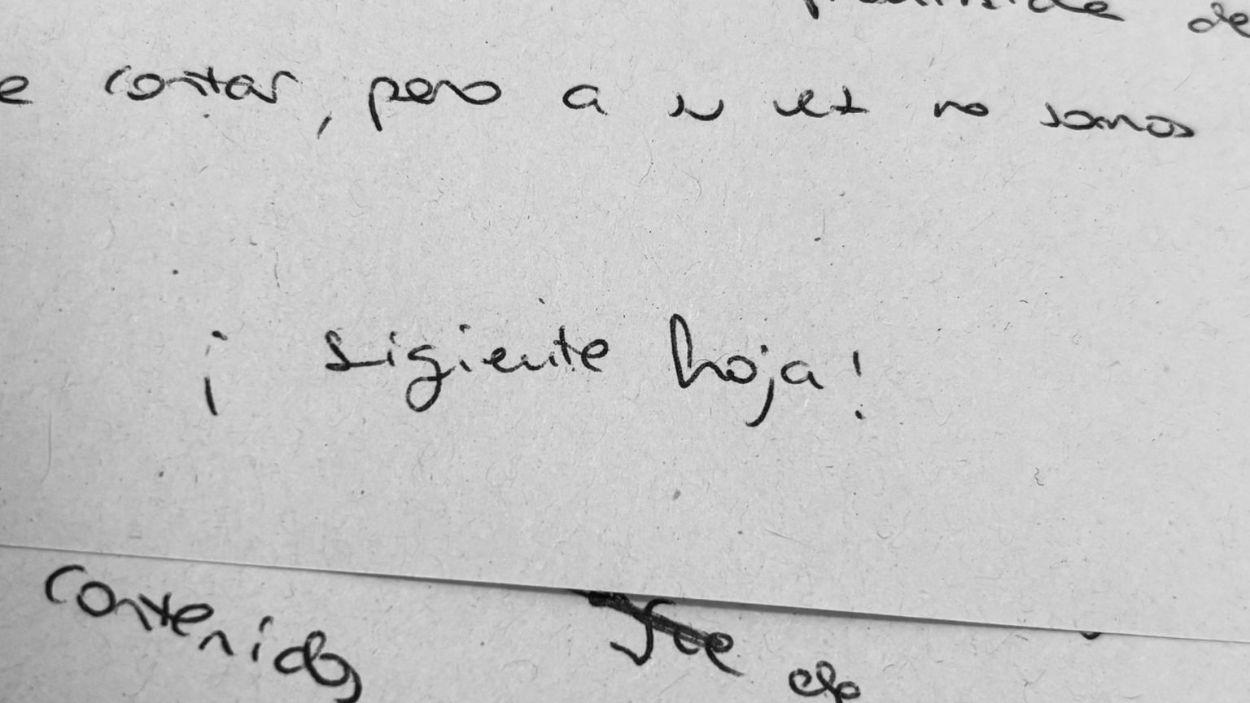 de
e contar, pero a su vez no somos
¡ sigiente hoja!
contenido